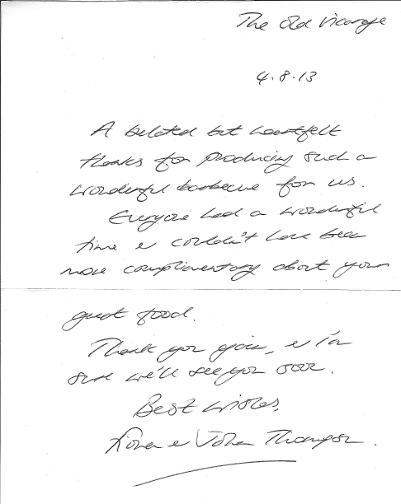 The Old Vicarage
4.8.13
A belated but heartfelt
thanks for producing such a
wonderful barbecue for us.
Everyone had a wonderful
time & couldn't have been
more complimentary about your
great food.
Thank you again, & I'm
sure we'll see you soon.
Best wishes,
& John Thompson.